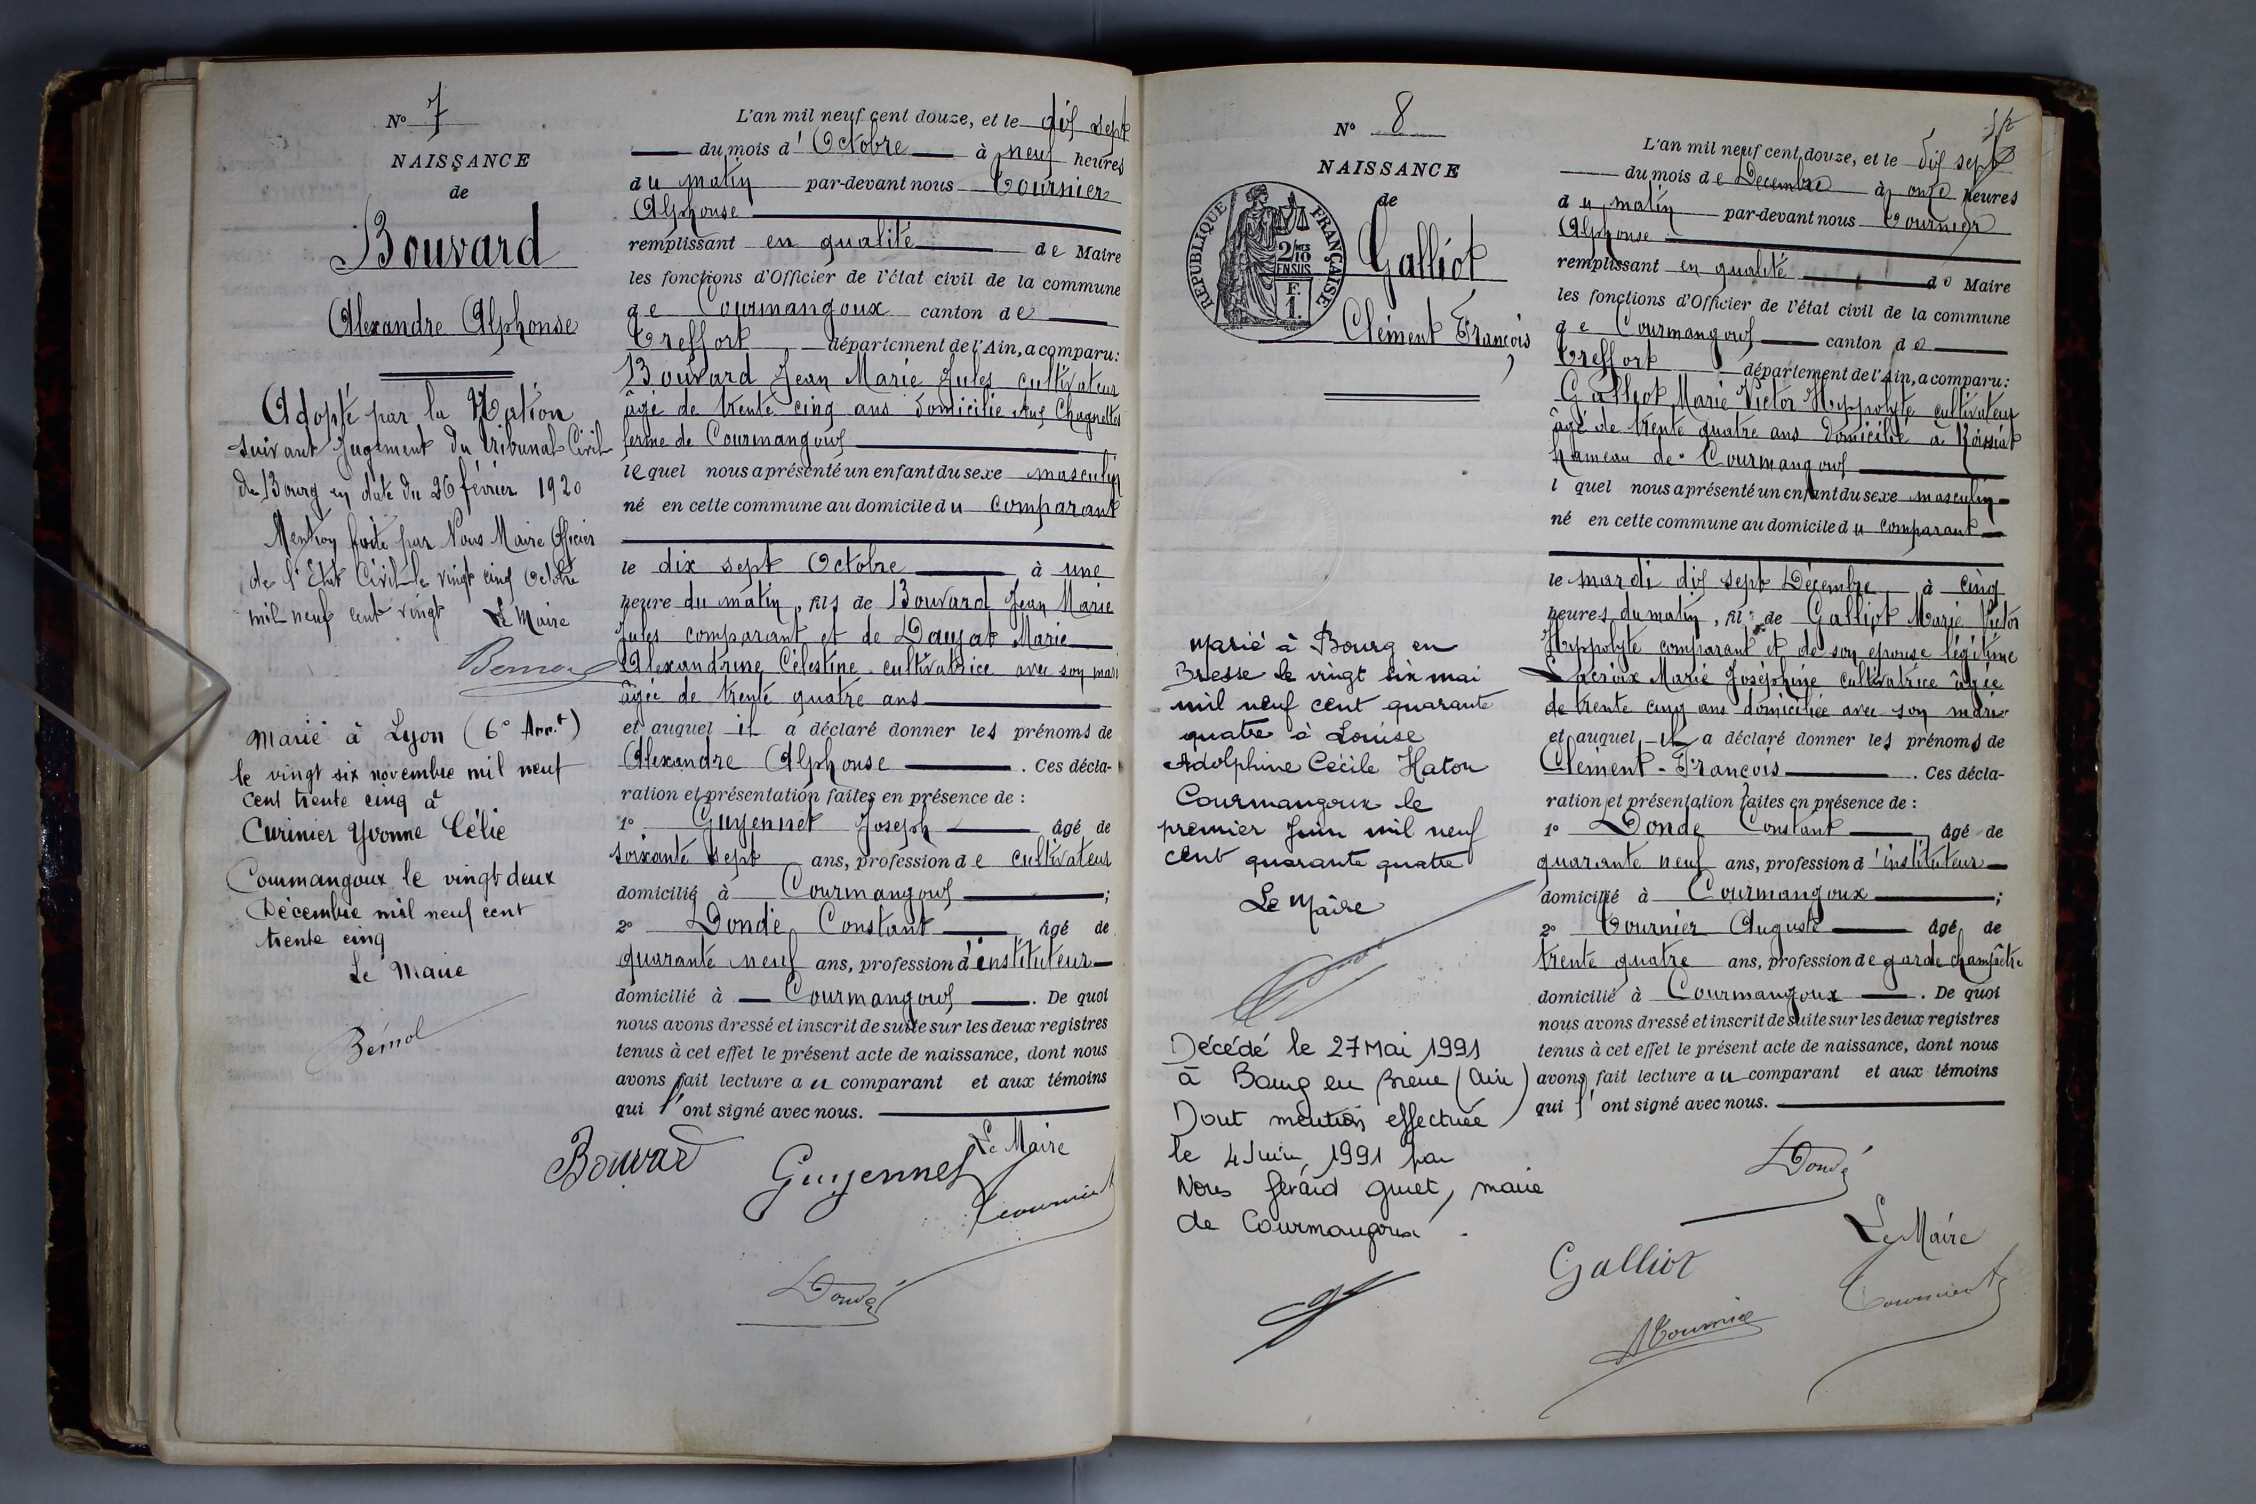 N° 7
NAISSANCE
de
Bouvard
Alexandre Alphonse
Adopté par la Nation
suivant Jugement du Tribunal Civil
de Bourg en date du 26 février 1920
Mention faite par Nous Maire Officier
de l'Etat Civil le vingt cinq Octobre
mil neuf cent vingt Le Maire
Marié à Lyon (6e Arr.t)
le vingt six novembre mil neuf
cent trente cinq à
Curinier Yvonne Célie
Courmangoux le vingt deux
Décembre mil neuf cent
trente cinq
Le Maire
Bémol
L'an mil neuf cent douze, et le dix sept
du mois d'Octobre à neuf heures
du matin par-devant nous Tournier
Alphonse
remplissant en qualité de Maire
les fonctions d'Officier de l'état civil de la commune
de Courmangoux canton de
Treffort département de l'Ain, a comparu:
Bouvard Jean Marie Jules cultivateur
âgé de trente cinq ans domicilié aux Chagnettes
ferme de Courmangoux
lequel nous a présenté un enfant du sexe masculin
né en cette commune au domicile du comparant
le dix sept Octobre à une
heure du matin, fils de Bouvard Jean Marie
Jules comparant et de Daujat Marie
Alexandrine Célestine cultivatrice avec son mari
âgée de trente quatre ans
et auquel il a déclaré donner les prénoms de
Alexandre Alphonse. Ces décla-
ration et présentation faites en présence de :
1° Guyennet Joseph âgé de
soixante sept ans, profession de cultivateur
domicilié à Courmangoux ;
2° Dondé Constant âgé de
quarante neuf ans, profession d'instituteur
domicilié à Courmangoux. De quoi
nous avons dressé et inscrit de suite sur les deux registres
tenus à cet effet le présent acte de naissance, dont nous
avons fait lecture au comparant et aux témoins
qui l'ont signé avec nous.
Bouvard Guyennet Le Maire
Tournier
Dondé
N° 8
NAISSANCE
de
RÉPUBLIQUE FRANÇAISE
2/10 EN SUS
F. 1.
Galliot
Clément François
Marié à Bourg en
Bresse le vingt six mai
mil neuf cent quarante
quatre à Louise
Adolphine Cécile Haton
Courmangoux le
premier Juin mil neuf
cent quarante quatre
Le Maire
Décédé le 27 Mai 1991
à Bourg en Bresse (Ain)
Dont mention effectuée
le 4 Juin 1991 par
Nous Gérard Guiet, maire
de Courmangoux.
L'an mil neuf cent douze, et le dix sept
du mois de Décembre à onze heures
du matin par-devant nous Tournier
Alphonse
remplissant en qualité de Maire
les fonctions d'Officier de l'état civil de la commune
de Courmangoux canton de
Treffort département de l'Ain, a comparu:
Galliot Marie Victor Hyppolyte cultivateur
âgé de trente quatre ans domicilié à Roissiat
hameau de Courmangoux
l quel nous a présenté un enfant du sexe masculin
né en cette commune au domicile du comparant
le mardi dix sept Décembre à cinq
heures du matin, fils de Galliot Marie Victor
Hyppolyte comparant et de son épouse légitime
Lacroix Marie Joséphine cultivatrice âgée
de trente cinq ans domiciliée avec son mari
et auquel il a déclaré donner les prénoms de
Clément-François. Ces décla-
ration et présentation faites en présence de :
1° Dondé Constant âgé de
quarante neuf ans, profession d'instituteur
domicilié à Courmangoux ;
2° Tournier Auguste âgé de
trente quatre ans, profession de garde champêtre
domicilié à Courmangoux. De quoi
nous avons dressé et inscrit de suite sur les deux registres
tenus à cet effet le présent acte de naissance, dont nous
avons fait lecture au comparant et aux témoins
qui l'ont signé avec nous.
Dondé
Le Maire
Galliot
Tournier
ATournier